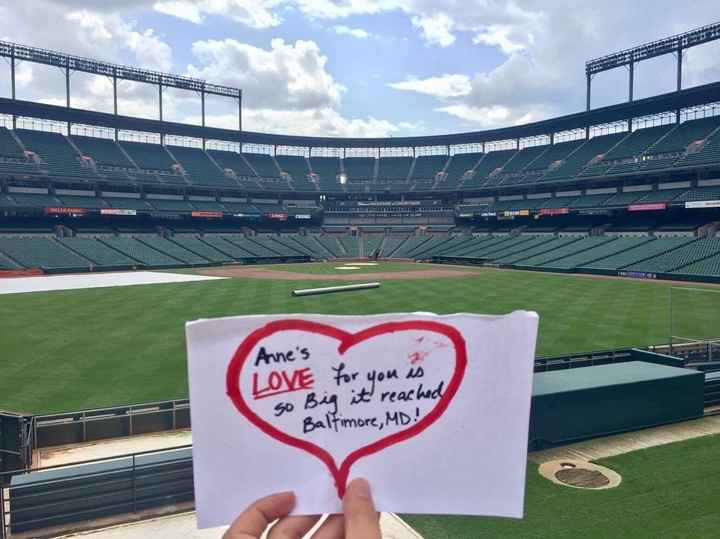 Anne's
LOVE for you is
so Big it reached
Baltimore, MD!